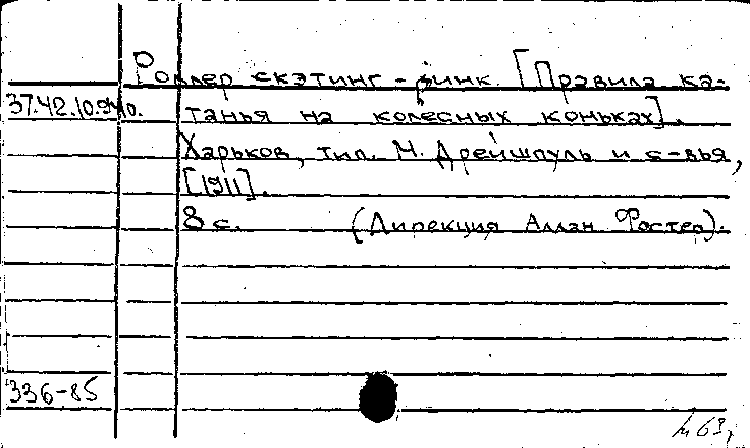 Роллер скэтинг-ринк. [Правила ка-
37.42.10.94о. танья на колесных коньках].
Харьков, тип. М. Дрейшпуль и с-вья,
[1911].
8 с. (Дирекция Аллан Фостер).
336-85